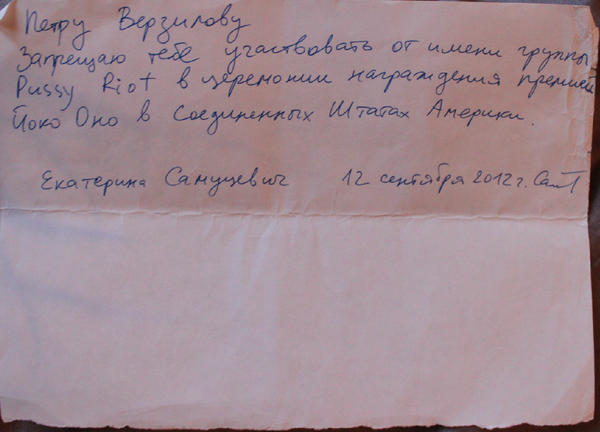 Петру Верзилову
Запрещаю тебе участвовать от имени группы
Pussy Riot в церемонии награждения премией
Йоко Оно в Соединенных Штатах Америки.
Екатерина Самуцевич 12 сентября 2012 г.